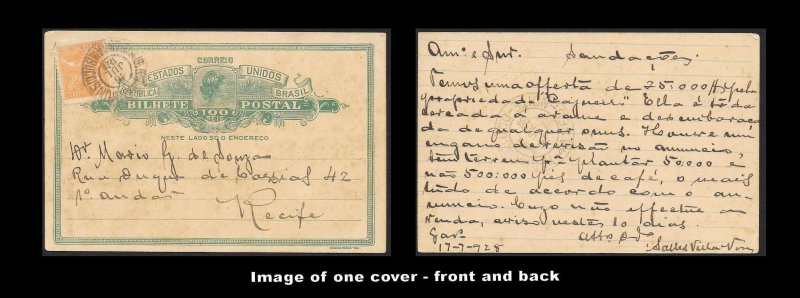 CORREIO
ESTADOS UNIDOS
BRASIL
BILHETE POSTAL
100
REIS
NESTE LADO SÓ O ENDEREÇO
Dr. Mario G. de Souza
Rua Duque de Caxias 42
1º andar
Recife
Am.º e Snr. Saudações
Temos uma offerta de 75:000$ pela
propriedade "Cajueiro" Ella é toda
cercada á arame e desembaraça
da de qualquer onus. Houve um
engano de revisão no annuncio,
tem terreno p.ª plantar 50.000 e
não 500:000 pés de café, o mais
tudo de accordo com o an-
nuncio. Cazo não effectue a
venda, avise nestes 10 dias.
17-7-928
Image of one cover - front and back